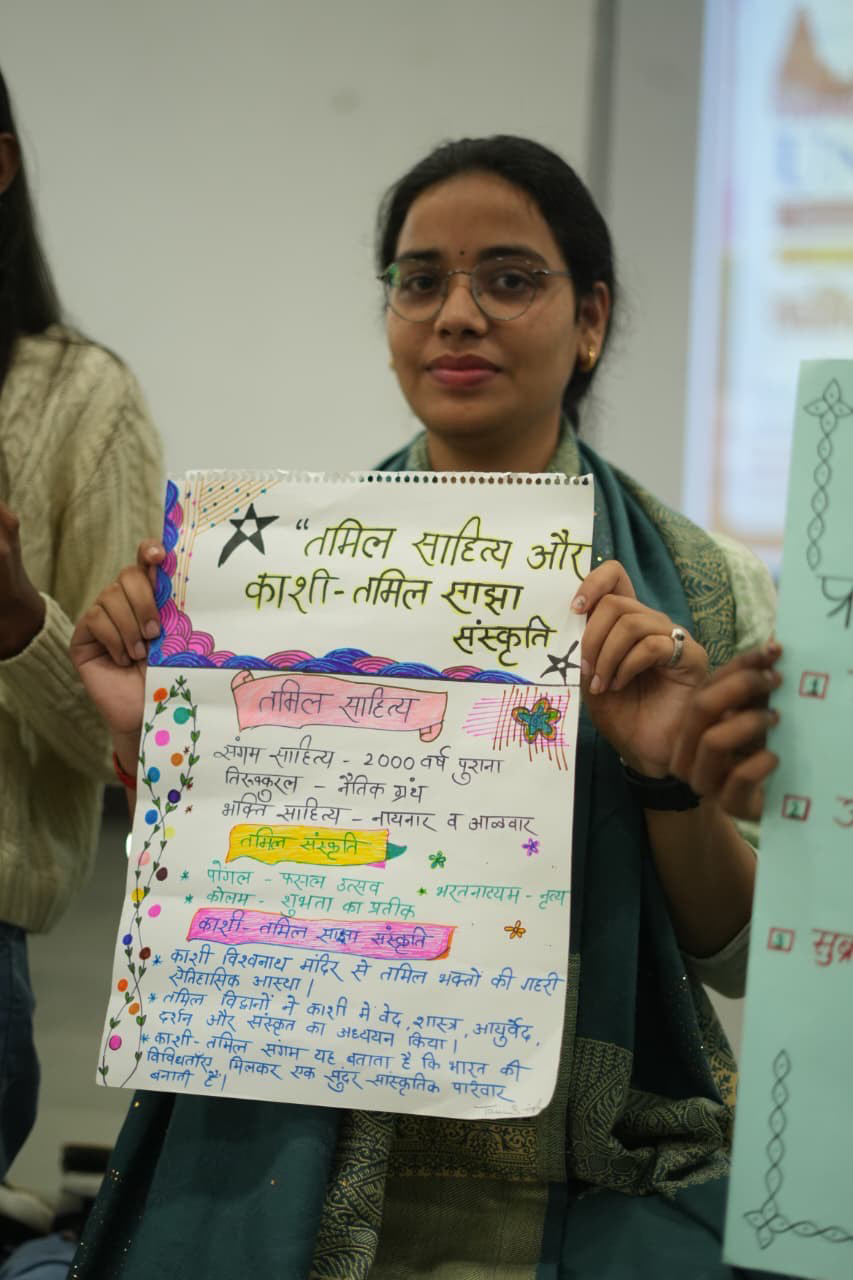 "तमिल साहित्य और
काशी-तमिल साझा
संस्कृति
तमिल साहित्य
संगम साहित्य - 2000 वर्ष पुराना
तिरुक्कुरल - नैतिक ग्रंथ
भक्ति साहित्य - नायनार व आळवार
तमिल संस्कृति
* पोंगल - फसल उत्सव
* भरतनाट्यम - नृत्य
* कोलम - शुभता का प्रतीक
काशी-तमिल साझा संस्कृति
* काशी विश्वनाथ मंदिर से तमिल भक्तों की गहरी
ऐतिहासिक आस्था।
* तमिल विद्वानों ने काशी में वेद, शास्त्र, आयुर्वेद,
दर्शन और संस्कृत का अध्ययन किया।
* काशी-तमिल संगम यह बताता है कि भारत की
विविधताएँ मिलकर एक सुंदर सांस्कृतिक परिवार
बनाती हैं।
1
2
3